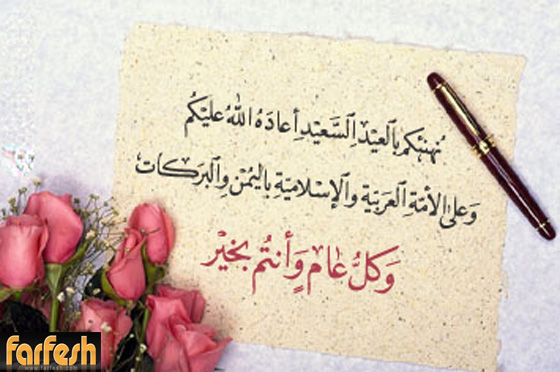 نُهنئكم بِالعِيْدِ السَّعِيْدِ أعادَهُ اللهُ عليكُم
وَعلى الأمّةِ العَرَبيّة والإسْلاميّةِ باليُمْنِ والبَرَكات
وَكلُّ عَام وَأنتُم بخيْر
farfesh
www.farfesh.com